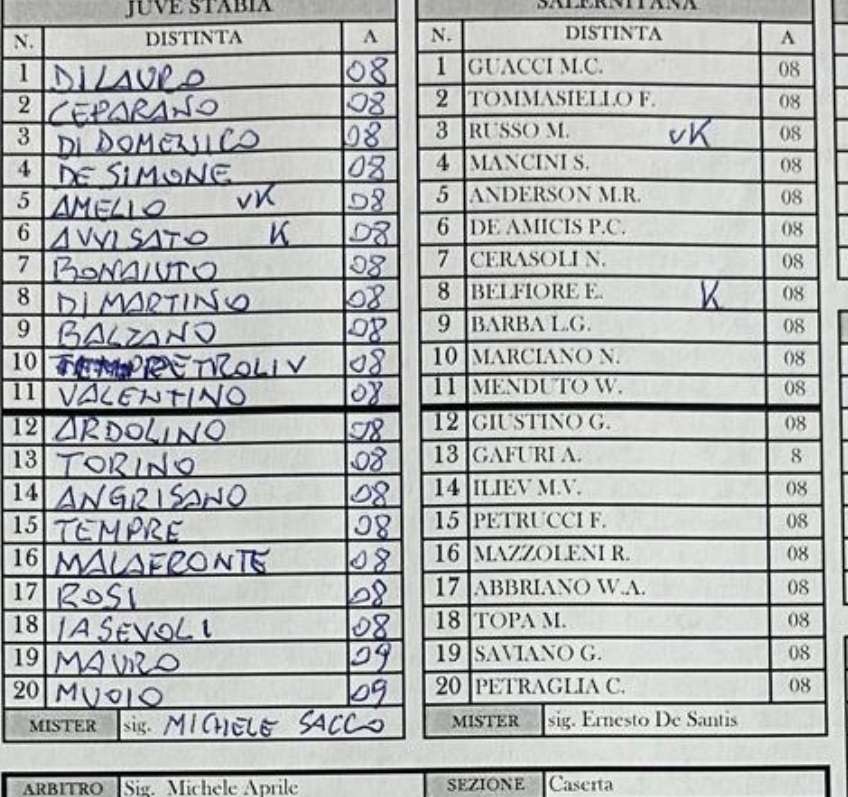 JUVE STABIA
N. DISTINTA A
1 DI LAURO 08
2 CEPARANO 08
3 DI DOMENICO 08
4 DE SIMONE 08
5 AMELIO vK 08
6 AVVISATO K 08
7 BONAIUTO 08
8 DI MARTINO 08
9 BALZANO 08
10 PETROLIV 08
11 VALENTINO 08
12 ARDOLINO 08
13 TORINO 08
14 ANGRISANO 08
15 TEMPRE 08
16 MALAFRONTE 08
17 ROSI 08
18 IASEVOLI 08
19 MAURO 09
20 MUOIO 09
MISTER sig. MICHELE SACCO
SALERNITANA
N. DISTINTA A
1 GUACCI M.C. 08
2 TOMMASIELLO F. 08
3 RUSSO M. vK 08
4 MANCINI S. 08
5 ANDERSON M.R. 08
6 DE AMICIS P.C. 08
7 CERASOLI N. 08
8 BELFIORE E. K 08
9 BARBA L.G. 08
10 MARCIANO N. 08
11 MENDUTO W. 08
12 GIUSTINO G. 08
13 GAFURI A. 8
14 ILIEV M.V. 08
15 PETRUCCI F. 08
16 MAZZOLENI R. 08
17 ABBRIANO W.A. 08
18 TOPA M. 08
19 SAVIANO G. 08
20 PETRAGLIA C. 08
MISTER sig. Ernesto De Santis
ARBITRO Sig. Michele Aprile SEZIONE Caserta